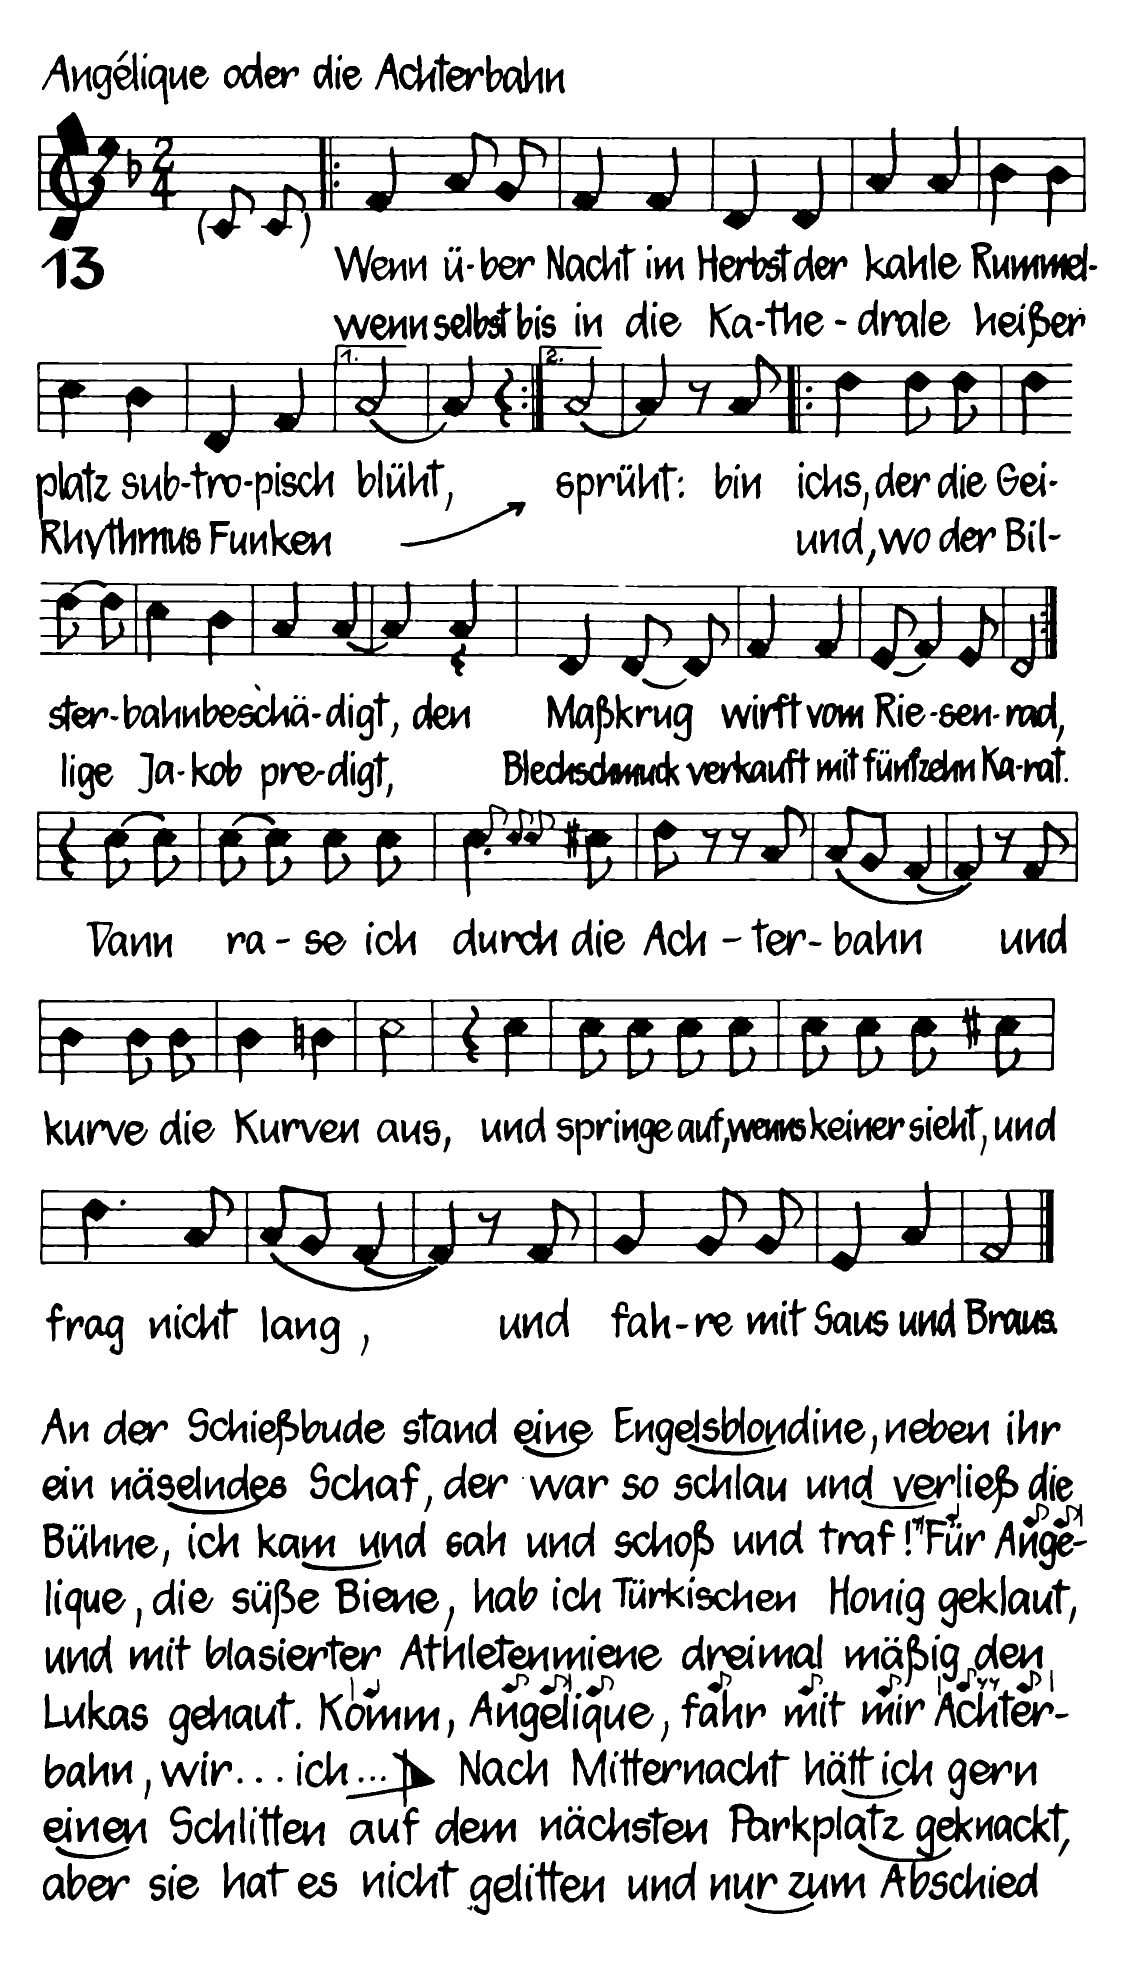 Angélique oder die Achterbahn
2
4
13
Wenn ü-ber Nacht im Herbst der kahle Rummel-
wenn selbst bis in die Ka-the-drale heißer
1. 2.
platz sub-tro-pisch blüht, sprüht: bin ichs, der die Gei-
Rhythmus Funken und, wo der Bil-
ster-bahnbeschä-digt, den Maßkrug wirft vom Rie-sen-rad,
lige Ja-kob pre-digt, Blechschmuck verkauft mit fünfzehn Ka-rat.
Dann ra-se ich durch die Ach-ter-bahn und
kurve die Kurven aus, und springe auf, wenns keiner sieht, und
frag nicht lang, und fah-re mit Saus und Braus.
An der Schießbude stand eine Engelsblondine, neben ihr
ein näselndes Schaf, der war so schlau und verließ die
Bühne, ich kam und sah und schoß und traf! Für Ange-
lique, die süße Biene, hab ich Türkischen Honig geklaut,
und mit blasierter Athletenmiene dreimal mäßig den
Lukas gehaut. Komm, Angelique, fahr mit mir Achter-
bahn, wir... ich... Nach Mitternacht hätt ich gern
einen Schlitten auf dem nächsten Parkplatz geknackt,
aber sie hat es nicht gelitten und nur zum Abschied